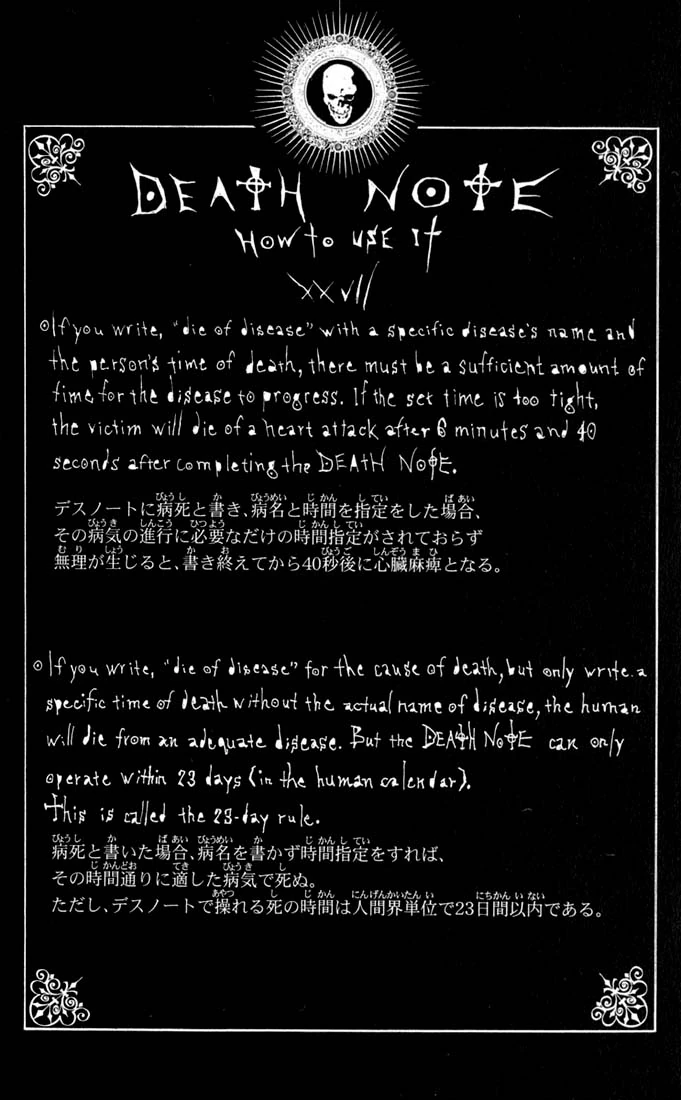 DEATH NOTE
HOW to USE It
XXVII
If you write, "die of disease" with a specific disease's name and
the person's time of death, there must be a sufficient amount of
time for the disease to progress. If the set time is too tight,
the victim will die of a heart attack after 6 minutes and 40
seconds after completing the DEATH NOTE.
デスノートに病死と書き、病名と時間を指定をした場合、
その病気の進行に必要なだけの時間指定がされておらず
無理が生じると、書き終えてから40秒後に心臓麻痺となる。
If you write, "die of disease" for the cause of death, but only write a
specific time of death without the actual name of disease, the human
will die from an adequate disease. But the DEATH NOTE can only
operate within 23 days (in the human calendar).
This is called the 23-day rule.
病死と書いた場合、病名を書かず時間指定をすれば、
その時間通りに適した病気で死ぬ。
ただし、デスノートで操れる死の時間は人間界単位で23日間以内である。